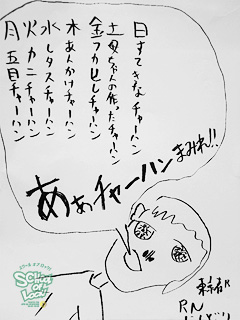 日 すてきなチャーハン
土 母ちゃんの作ったチャーハン
金 フカヒレチャーハン
木 あんかけチャーハン
水 レタスチャーハン
火 カニチャーハン
月 五目チャーハン
あぁチャーハン
まみれ!!
東京都
RN
SCHOOL OF LOCK!